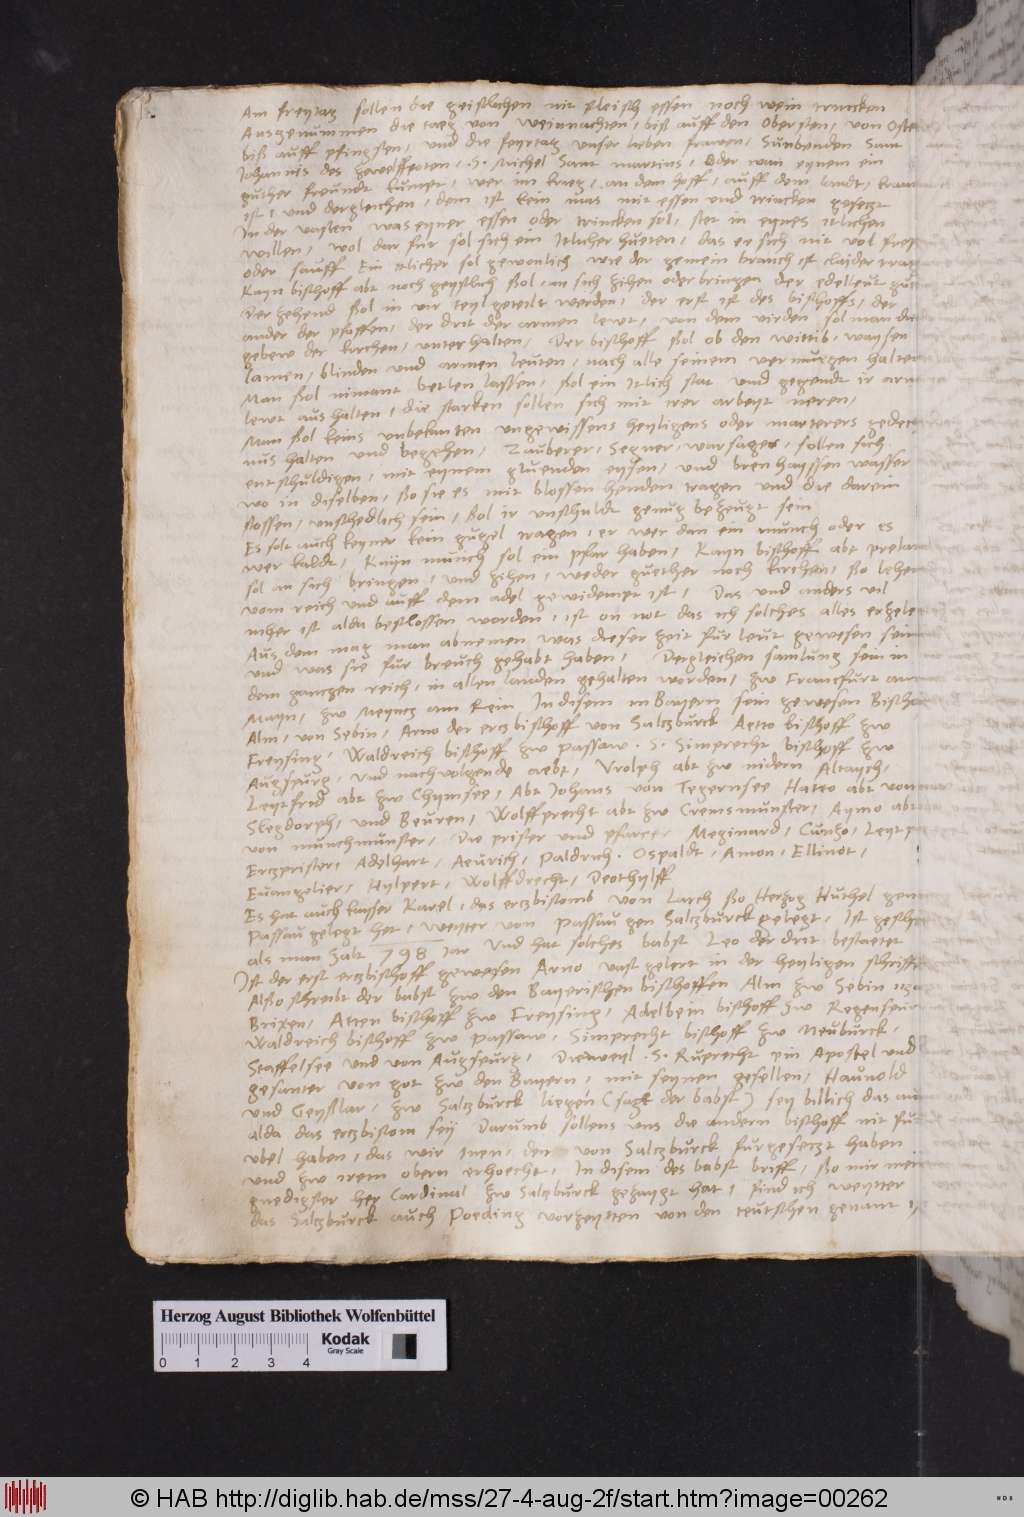 Am freytag sollen die geistlichen nit fleisch essen noch wein trincken
Ausgenummen die taeg von weinnachten, biß auff den Obersten, von Oste
biß auff pfingsten, und die feyrtag unser lieben frawen, Sunbenden Sant
Johannis des zwelffboten, S. Michel Sant martins, Oder wan eynem ein
guether freundt kumet, wer im krieg, an dem hoff, auff dem landt, kran
ist, und dergleichen, dem ist kein mas mit essen und trincken gesetzt
In der vasten was eyner essen oder trincken sol, stet in eynes itlichen
willen, wol dar fur sol sich ein Itlicher hueten, das er sich nit vol fress
oder sauff Ein itlicher sol gewonlich wie der gemein brauch ist claider tra
Kayn bischoff abt noch geystlich ßol, an sich zihen oder bringen der edelleut gue
Der zehend ßol in vir teyl geteilt werden, der erst ist des bischoffs, der
ander der pfaffen, der drit der armen lewt, von dem virden sol man die
gebew der kirchen, unterhalten, Der bischoff ßol ob den wittib, waysen
lamen, blinden und armen leuten, nach alle seinem vermuegen halten
Man ßol nimant betlen lassen, ßol ein Itlich stat und gegendt ir arm
lewt aus halten, die starken sollen sich mit irer arbeyt neren,
Man ßol keins unbekanten ungewissens heyligens oder marterers gedec
nus halten und begehen, Zauberer, Segner, warsager, sollen sich
entschuldigen, mit eynem gluenden eysen, und bren hayssen wasser
wo in diselben, ßo sie es mit blossen henden tragen und die darein
stossen, unschedlich sein, ßol ir unschuldt genug bezeugt sein
Es solt auch keyner kein gugel tragen, er wer dan ein munch oder es
wer kaldt, Kayn munch sol ein pfar haben, Kayn bischoff abt prelat
sol an sich bringen, und zihen, weder guether noch kirchen, ßo lehen
vom reich und auff dem adel gewidemet ist, Das und anders vil
mher ist alda beschlossen worden, ist on not das ich solches alles erzele
Aus dem mag man abnemen was dieser zeit fur leut gewesen sein
und was sie fur breuch gehabt haben, Dergleichen samlung sein in
dem gantzen reich, in allen landen gehalten worden, zw Francfurt am
Mayn, zw Meyntz am Rein In disem in Bayern sein gewesen Bischo
Alm, von Sebin, Arno der ertzbischoff von Saltzburck Aetto bischoff zw
Freysing, Waldreich bischoff zw Passaw. S. Simprecht bischoff zw
Augspurg, und nachvolgende aebt, Urolph abt zw nidern Altaych,
Leytfrid abt zw Chymsee, Abt Johans von Tegernsee Hatto abt von
Slegdorph, und Beuren, Wolffprecht abt zw Cremsmunster, Aymo abt
von munchmunster, Die prister und pfarrer, Meginard, Cuntzo, Leyt p
Ertzprister, Adelhart, Aeurich, Paldrich. Ospaldt, Amon, Ellinot,
Euangelier, Hylpert, Wolffdrecht, Deothylff
Es hat auch kayser Karel, das ertzbistomb von Larch ßo Hertzog Huthel gen
Passau gelegt het, weyter von Passau gen Saltzburck gelegt, Ist gesche
als man zalt 798 Jar Und hat solches babst Leo der drit bestaetet
Ist der erst ertzbischoff gewesen Arno vast gelert in der heyligen schrifft
Alßo schreibt der babst zw den Bayerischen bischoffen Alm zw Sebin
Brixen, Atten bischoff zw Freysing, Adelbein bischoff zw Regenspur
Waldreich bischoff zw Passaw, Simprecht bischoff zw Neuburck,
Staffelsee und von Augspurg, Dieweyl S. Ruprecht ein Apostel und
gesanter von got zw den Bayern, mit seynen gesellen, Haunold
und Geysslar, zw Saltzburck liegen (sagt der babst) sey billich das au
alda das ertzbistom sey Darumb sollens uns die andern bischoff nit fu
ubel haben, das wir inen, den von Saltzburck furgesetzt haben
und zw irem obern erhoecht, In disem des babst briff, ßo mir mei
gnedigster her Cardinal zw Saltzburck gezaygt hat, find ich weytter
das Saltzburck auch Poeding vorzeytten von den teutschen genant
Herzog August Bibliothek Wolfenbüttel
Kodak
Gray Scale
0 1 2 3 4
© HAB http://diglib.hab.de/mss/27-4-aug-2f/start.htm?image=00262